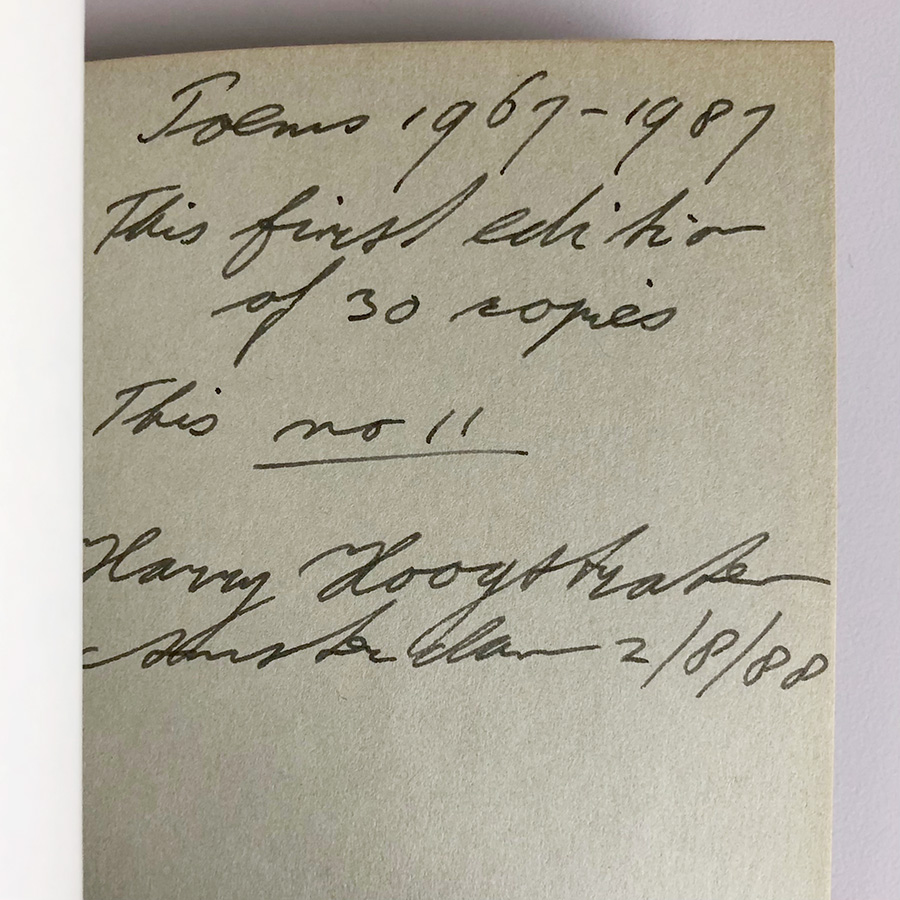 Poems 1967-1987
This first edition
of 30 copies
This no 11
Harry Hoogstraten
Amsterdam 2/8/88